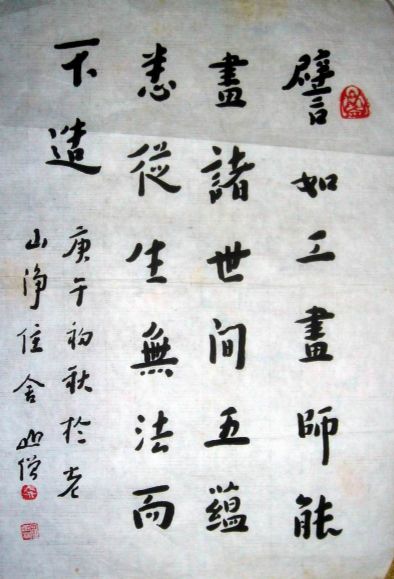 譬如工畫師能
畫諸世間五蘊
悉從生無法而
不造
庚午初秋於老
山淨住舍僧